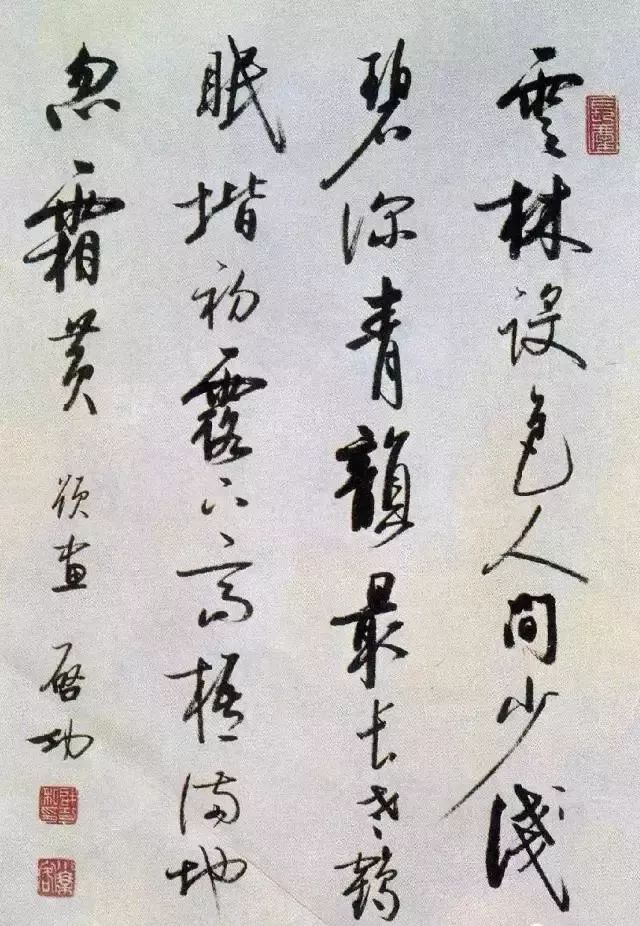 雲林設色人間少淺
碧深青韻最長老鶴
眠堦初露下高梧滿地
忽霜黃 題畫 啟功